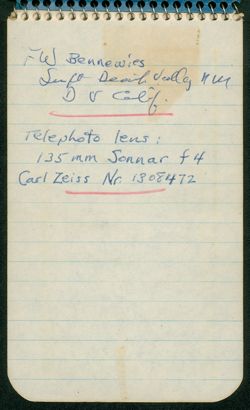 FW Bennewies
Supt Death Valley N M
D V Calif.
Telephoto lens:
135 mm Sonnar f4
Carl Zeiss Nr. 1308472